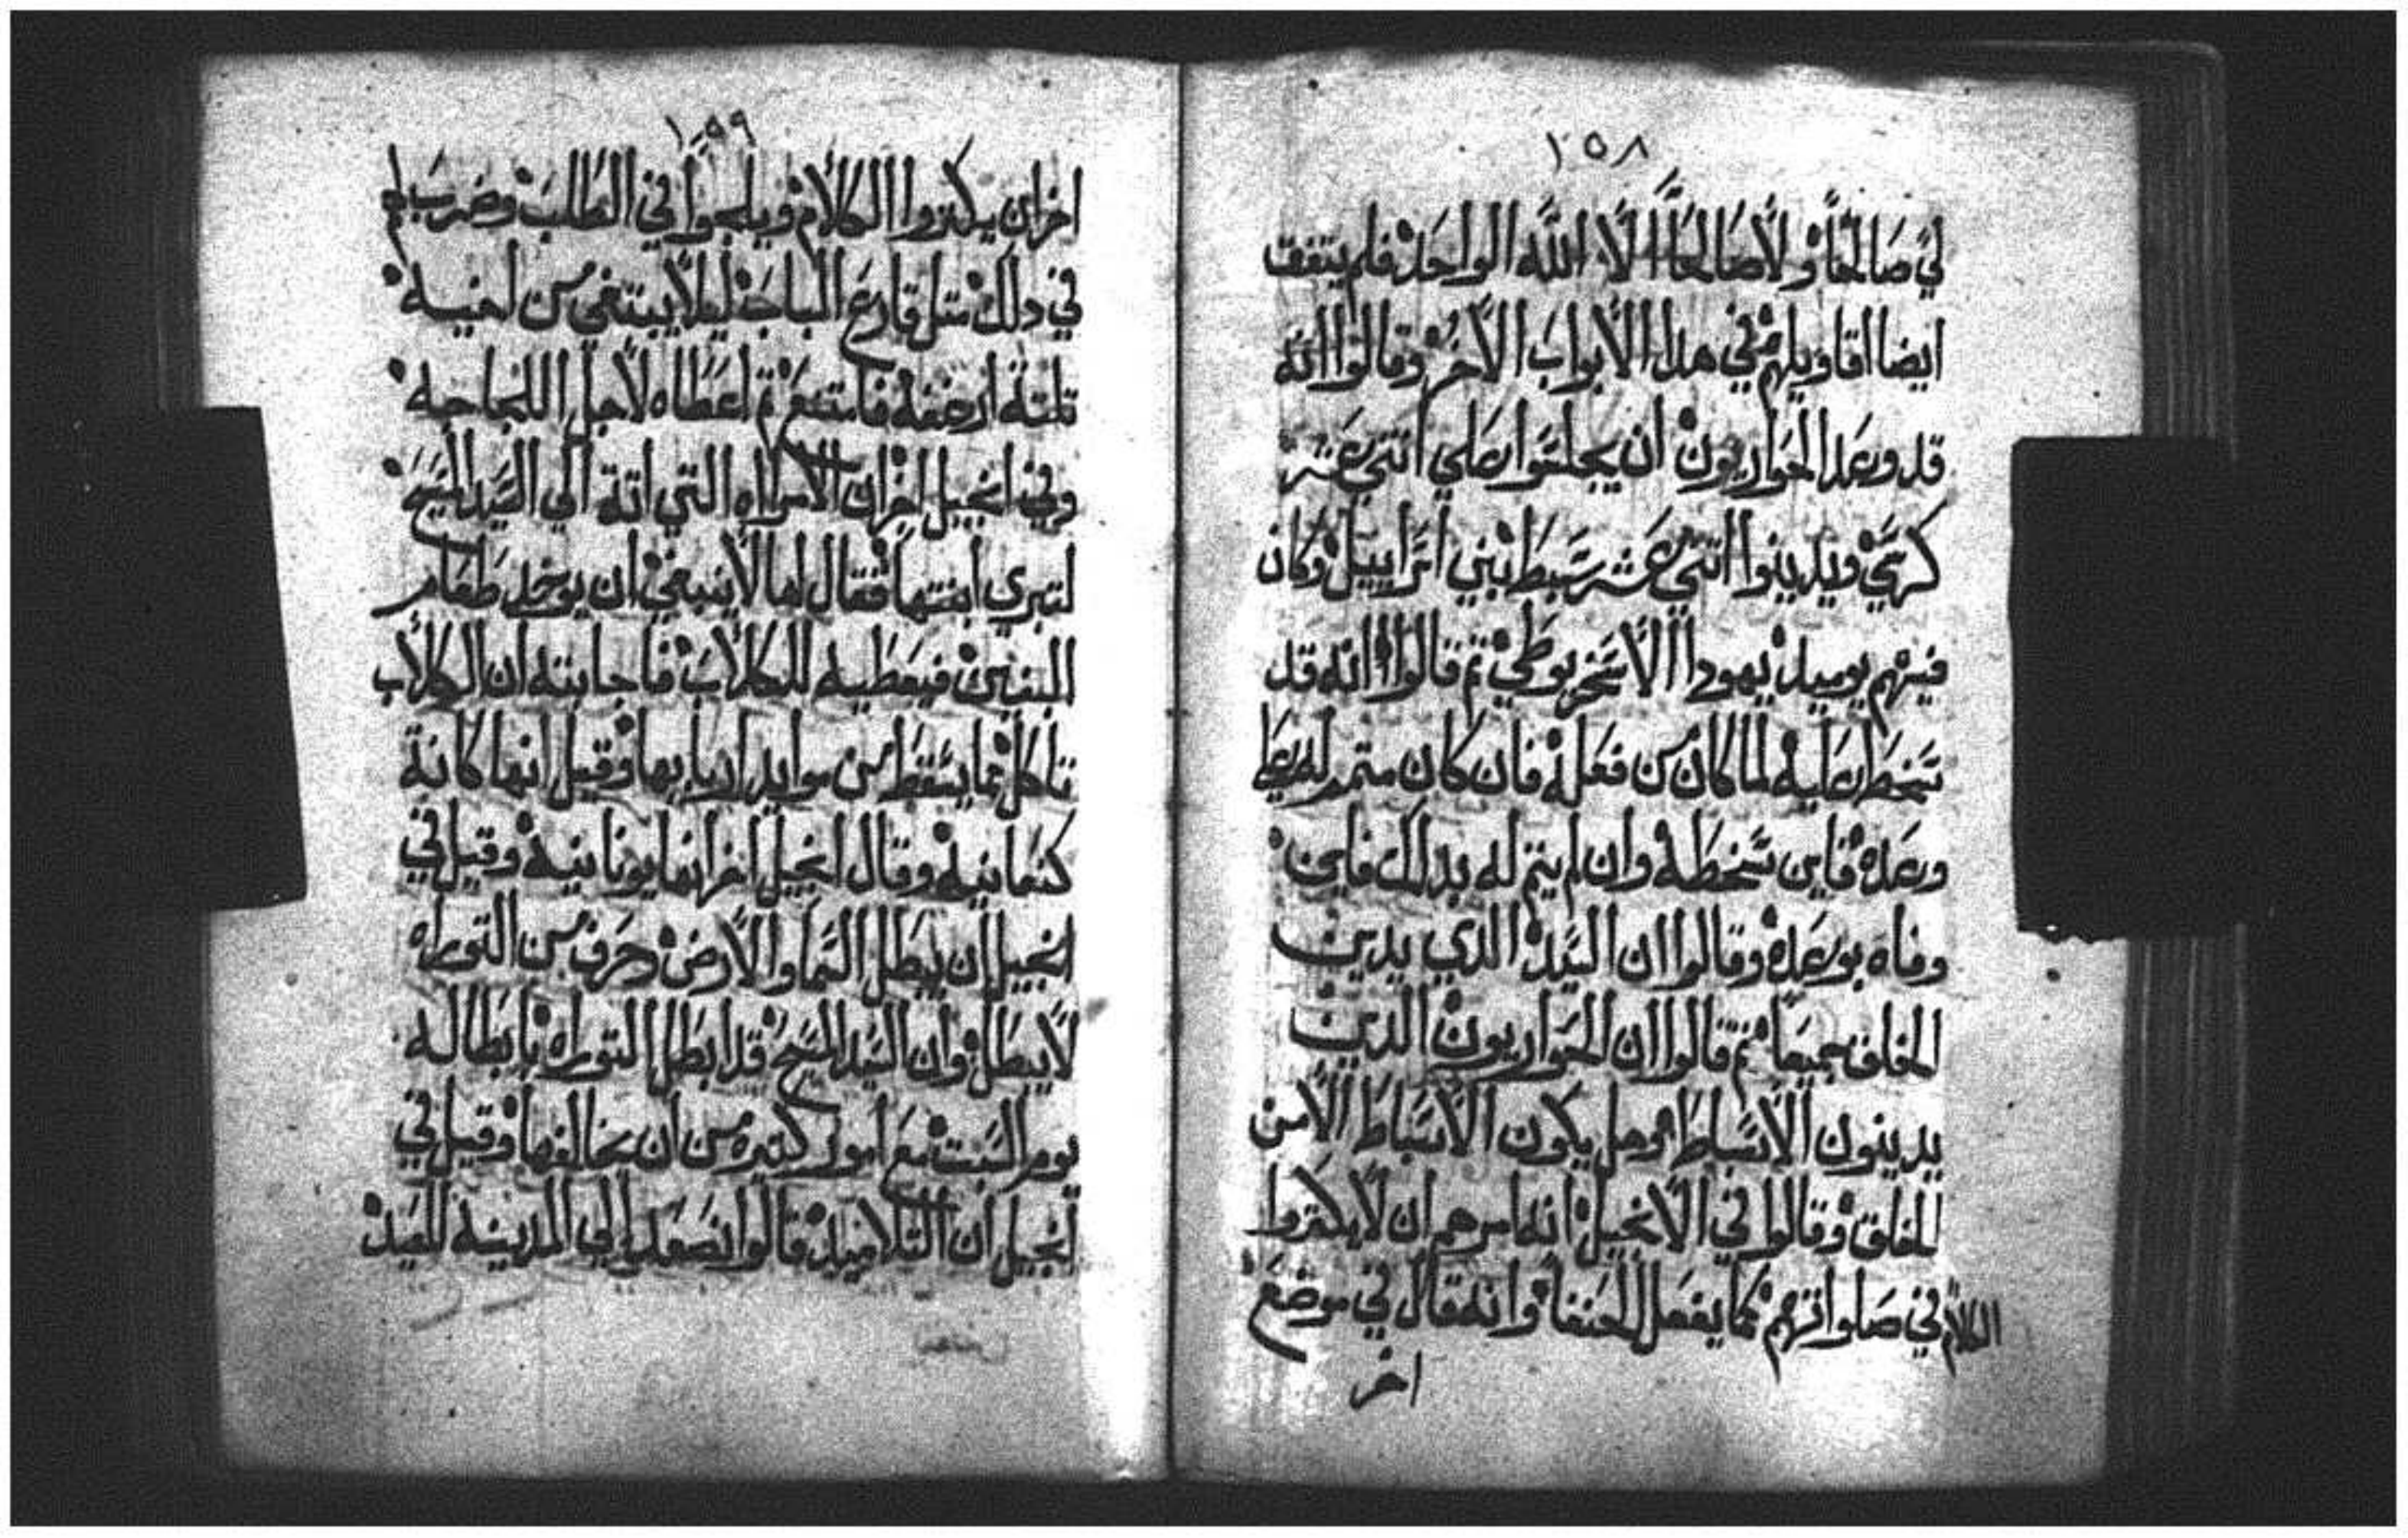 ١٥٨
لي صالحًا ولا صالحًا الا الله الواحد فلم يتفق
ايضا اقاويلهم في هدا الابواب الاخر وقالوا انه
قد وعد الحواريون ان يجلسوا علي اتني عشر
كرسي ويدينوا اتني عشر سبط بني اسراييل وكان
فيهم يوميد يهودا الاسخريوطي تم قالوا انه قد
سخط عليه لما كان من فعله فان كان متمم له يعط
وعده فاين سخطه وان لم يتم له بدلك فاين
وفاه بوعده وقالوا ان السيد الدي يدين
الخلق جميعا تم قالوا ان الحواريون الدين
يدينون الاسباط وهل يكون الاسباط الا من
الخلق وقالوا في الانجيل انه امرهم ان لا يكتروا
الكلام في صلواتهم كما يفعل الحنفا وانه قال في موضع
اخر
١٥٩
اخر ان يكتروا الكلام ويلجوا في الطلب وضرب لهم
في دلك متل قارع الباب ليلا يبتغي من اخيه
تلتة ارغفة فامتنع تم اعطاه لاجل اللجاجه
وفي انجيل اخر ان الامراه التي اتة الي السيد المسيح
لتبري ابنتها فقال لها لا ينبغي ان يوخد طعام
البنين فيعطيه للكلاب فاجابته ان الكلاب
تاكل مما يسقط من موايد اربابها وقيل انها كانة
كنعانيه وقال انجيل اخر انها يونانيه وقيل في
انجيل ان يبطل السما والارض وحرف من التوراه
لا يبطل وان السيد المسيح قد ابطل التوراه بابطاله
يوم السبت مع امور كتيره من ان يخالفها وقيل في
انجيل ان التلاميد قالوا نصعد الي المدينه للعيد